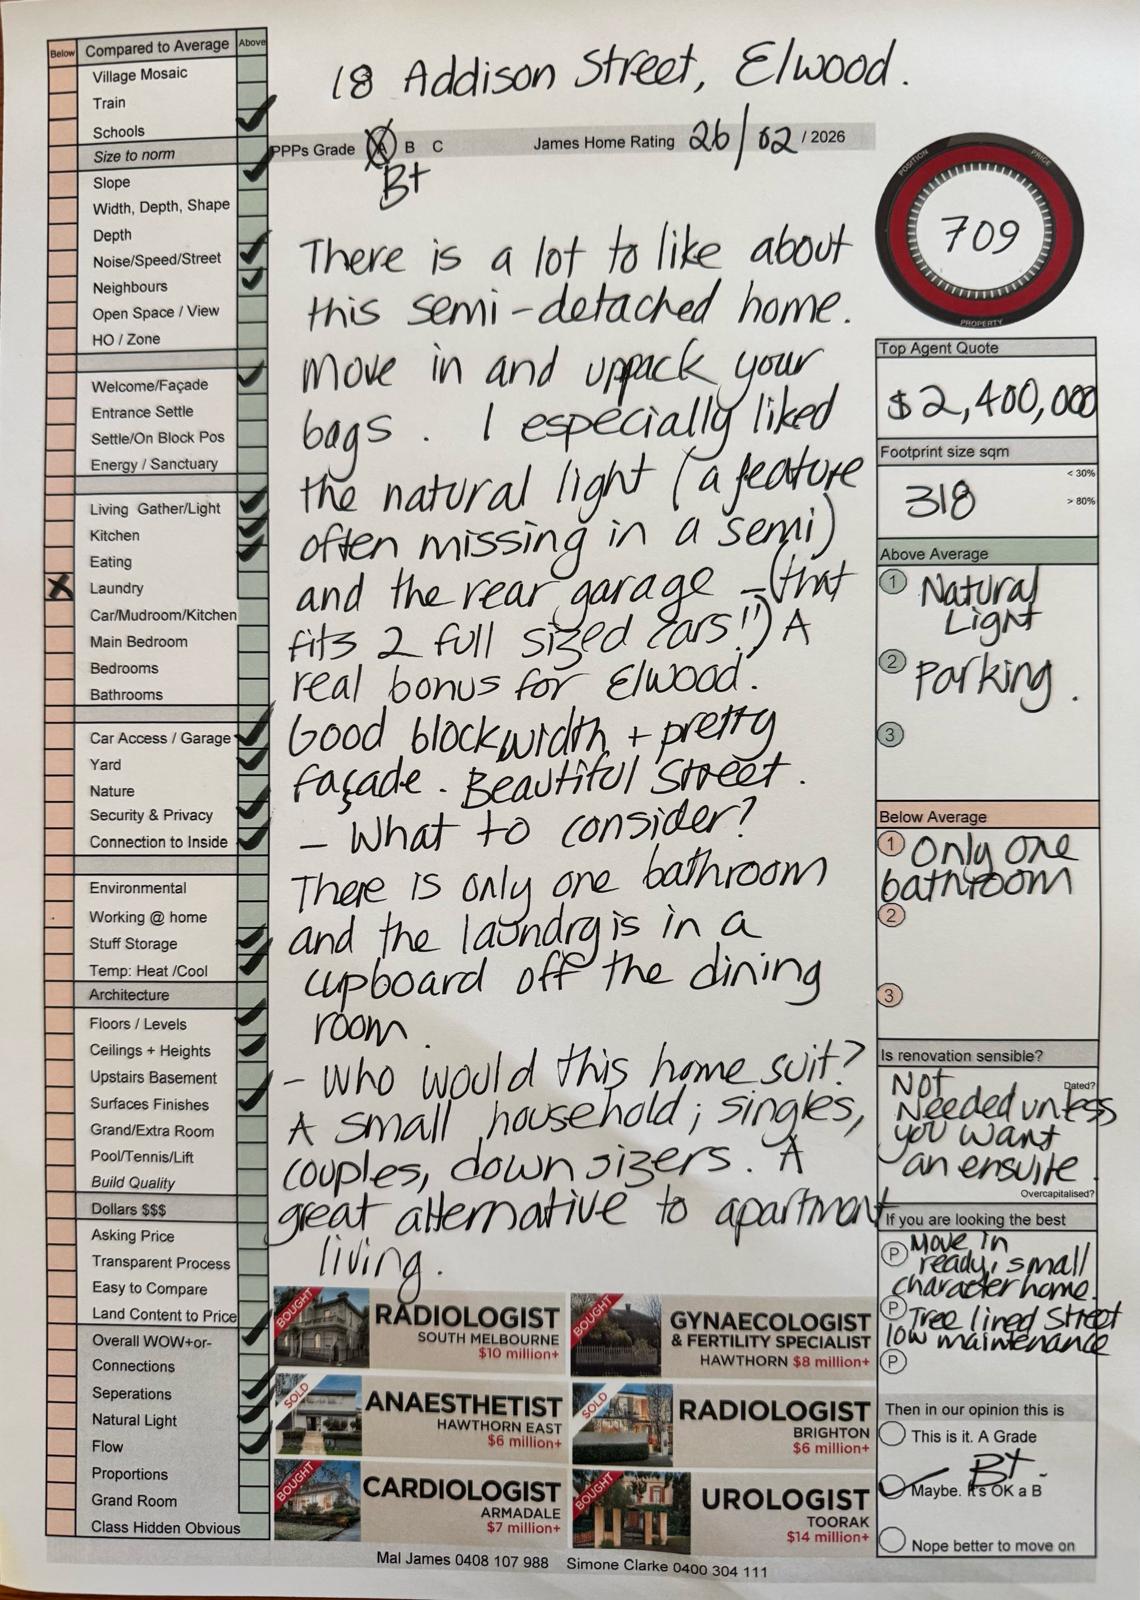 Below Compared to Average Above
Village Mosaic
Train
Schools
Size to norm
Slope
Width, Depth, Shape
Depth
Noise/Speed/Street
Neighbours
Open Space / View
HO / Zone
Welcome/Façade
Entrance Settle
Settle/On Block Pos
Energy / Sanctuary
Living Gather/Light
Kitchen
Eating
Laundry
Car/Mudroom/Kitchen
Main Bedroom
Bedrooms
Bathrooms
Car Access / Garage
Yard
Nature
Security & Privacy
Connection to Inside
Environmental
Working @ home
Stuff Storage
Temp: Heat /Cool
Architecture
Floors / Levels
Ceilings + Heights
Upstairs Basement
Surfaces Finishes
Grand/Extra Room
Pool/Tennis/Lift
Build Quality
Dollars $$$
Asking Price
Transparent Process
Easy to Compare
Land Content to Price
Overall WOW+or-
Connections
Seperations
Natural Light
Flow
Proportions
Grand Room
Class Hidden Obvious
18 Addison Street, Elwood.
PPPs Grade A B C James Home Rating 26/02 / 2026
B+
There is a lot to like about
this semi-detached home.
Move in and uppack your
bags. I especially liked
the natural light (a feature
often missing in a semi)
and the rear garage - (that
fits 2 full sized cars!!) A
real bonus for Elwood.
Good block width + pretty
façade. Beautiful Street.
- What to consider?
There is only one bathroom
and the laundry is in a
cupboard off the dining
room.
- Who would this home suit?
A small household; singles,
couples, downsizers. A
great alternative to apartment
living.
POSITION PRICE
709
PROPERTY
Top Agent Quote
$2,400,000
Footprint size sqm
< 30%
318
> 80%
Above Average
1 Natural
Light
2 Parking.
3
Below Average
1 Only one
bathroom
2
3
Is renovation sensible?
Dated?
Not
Needed unless
you want
an ensuite.
Overcapitalised?
If you are looking the best
P Move in
ready, small
character home.
P Tree lined Street
low maintenance
P
Then in our opinion this is
This is it. A Grade
B+.
Maybe. It's OK a B
Nope better to move on
BOUGHT
RADIOLOGIST
SOUTH MELBOURNE
$10 million+
BOUGHT
GYNAECOLOGIST
& FERTILITY SPECIALIST
HAWTHORN $8 million+
SOLD
ANAESTHETIST
HAWTHORN EAST
$6 million+
SOLD
RADIOLOGIST
BRIGHTON
$6 million+
BOUGHT
CARDIOLOGIST
ARMADALE
$7 million+
BOUGHT
UROLOGIST
TOORAK
$14 million+
Mal James 0408 107 988 Simone Clarke 0400 304 111